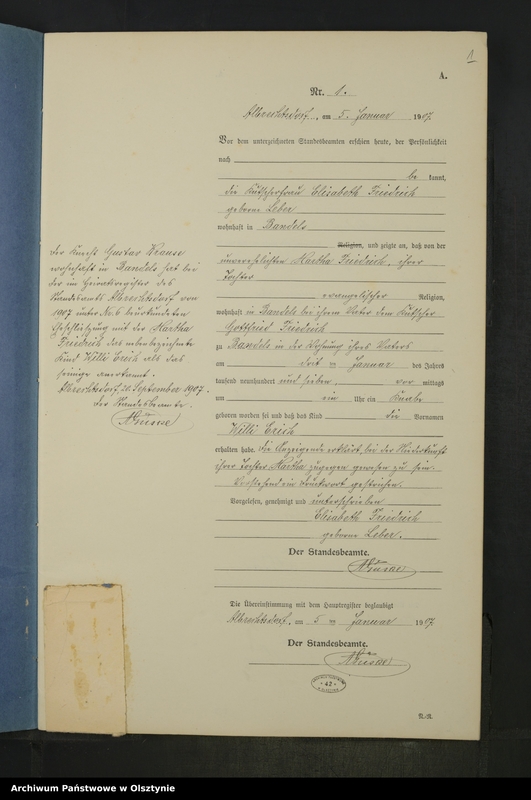 1
A.
Nr. 1.
Albrechtsdorf, am 5. Januar 1907.
Vor dem unterzeichneten Standesbeamten erschien heute, der Persönlichkeit
nach
be kannt,
die Kutscherfrau Elisabeth Friedrich
geborne Leber
wohnhaft in Bandels
Religion, und zeigte an, daß von der
unverehelichten Martha Friedrich, ihrer
Tochter
evangelischer Religion,
wohnhaft in Bandels bei ihrem Vater dem Kutscher
Gottfried Friedrich
zu Bandels in der Wohnung ihres Vaters
am Januar des Jahres
tausend neunhundert und sieben, vor mittags
um ein Uhr ein Knabe
geboren worden sei und daß das Kind die Vornamen
Willi Erich
erhalten habe. Die Anzeigende erklärt, bei der Niederkunft
ihrer Tochter Martha zugegen gewesen zu sein.
Vorstehend ein Druckwort gestrichen.
Vorgelesen, genehmigt und unterschrieben
Elisabeth Friedrich
geborne Leber.
Der Standesbeamte.
Die Übereinstimmung mit dem Hauptregister beglaubigt
Albrechtsdorf, am 5 Januar 1907.
Der Standesbeamte.
- 42 -
Der Knecht Gustav Krause
wohnhaft in Bandels hat bei
der im Heiratsregister des
Standesamts Albrechtsdorf von
1907 unter Nr. 6 beurkundeten
Eheschließung mit der Martha
Friedrich das nebenbezeichnete
Kind Willi Erich als das
seinige anerkannt.
Albrechtsdorf, September 1907.
Der Standesbeamte.
Archiwum Państwowe w Olsztynie